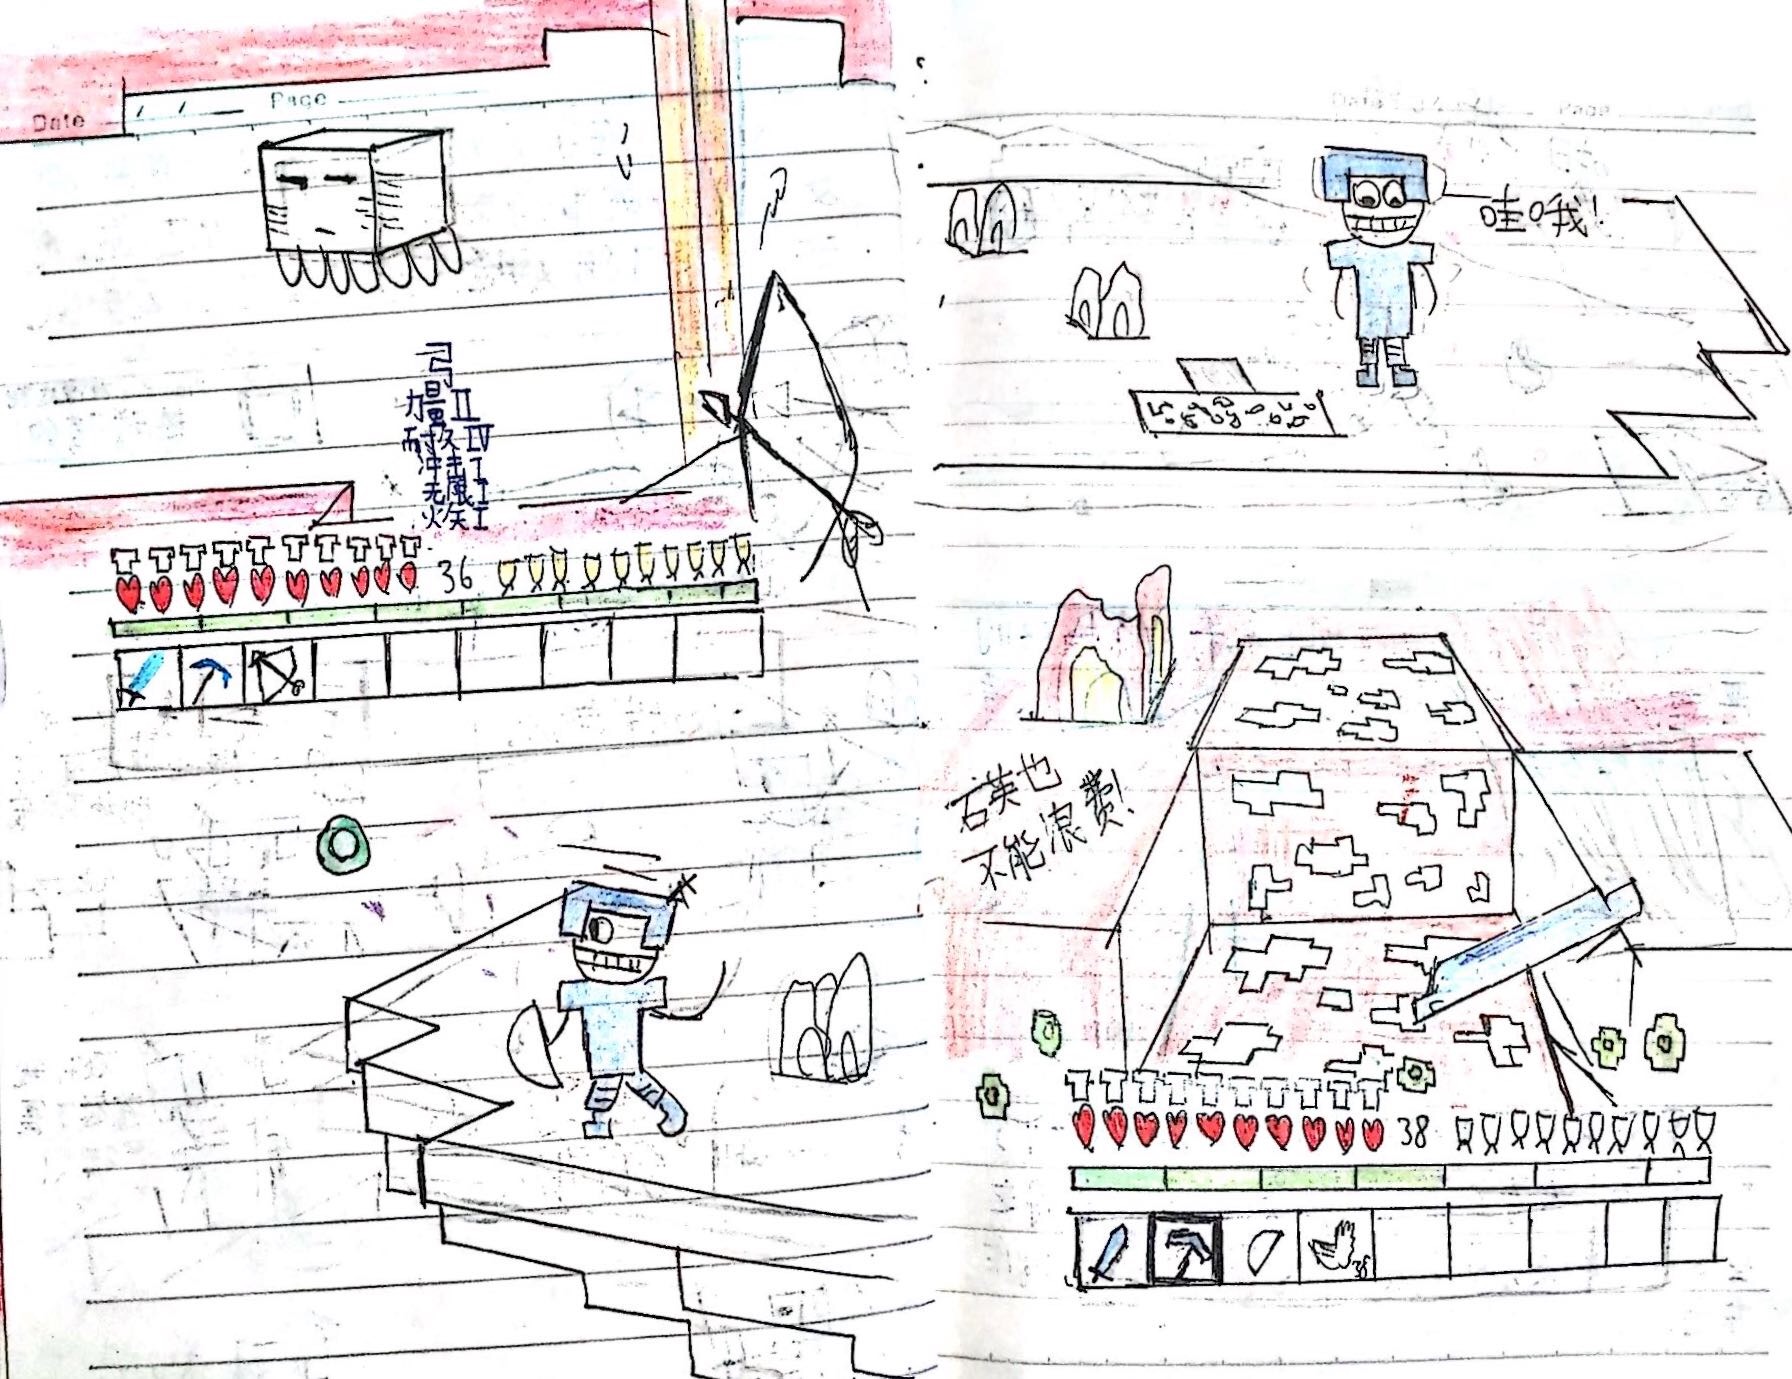 Date
Page
弓
力量II
耐久IV
冲击I
无限I
火矢I
36
Page
哇哦!
石英也
不能浪费!
38
38